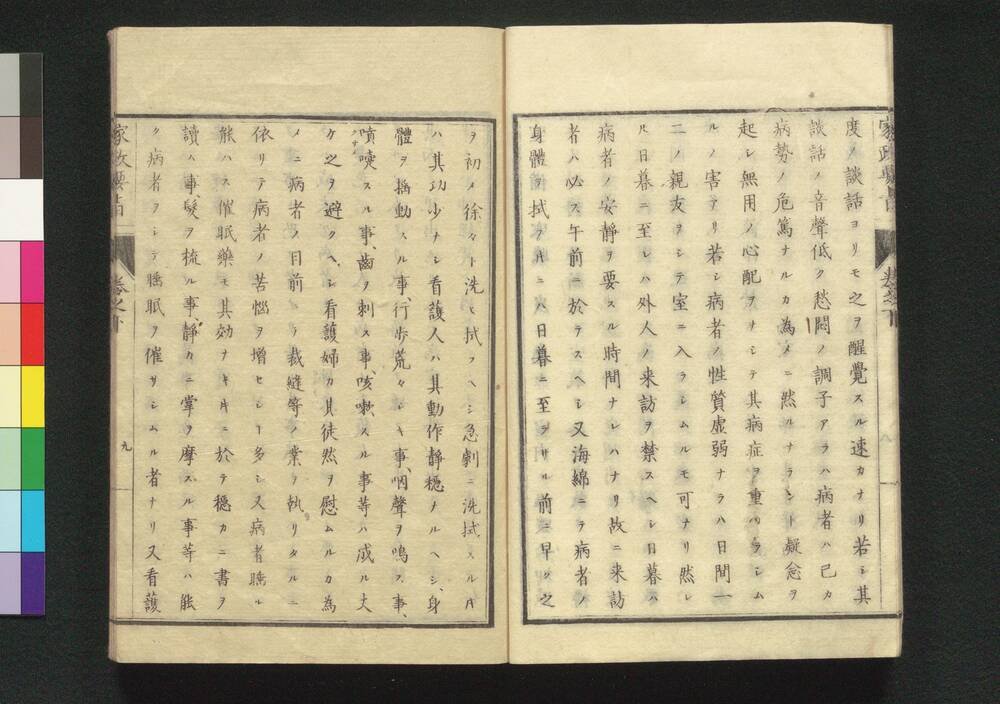 度ノ談話ヨリモ之ヲ醒覺スル速カナリ若シ其
談話ノ音聲低ク愁悶ノ調子アラハ病者ハ己カ
病勢ノ危篤ナルカ為メニ然ルナラント疑念ヲ
起シ無用ノ心配ヲナシテ其病症ヲ重ハラシム
ルノ害アリ若シ病者ノ性質虚弱ナラハ日間一
二ノ親友ヲシテ室ニ入ラシムルモ可ナリ然レ
ル日暮ニ至レハ外人ノ来訪ヲ禁スヘシ日暮ハ
病者ノ安靜ヲ要スル時間ナレハナリ故ニ来訪
者ハ必ス午前ニ於テスヘシ又海綿ニテ病者ノ
身體ヲ拭フ𪜈ニハ日暮ニ至ラサル前ニ早ク之
ヲ初メ徐々ト洗ヒ拭フヘシ急劇ニ洗拭スル𪜈
ハ其功少ナシ看護人ハ其動作靜穏ナルヘシ、身
體ヲ搖動スル事、行歩荒々シキ事、咽聲ヲ鳴ス事、
噴嚏スル事、齒ヲ刺ス事、咳嗽スル事等ハ成ル丈
ケ之ヲ避クヘシ看護婦カ其徒然ヲ慰ムルカ為
メニ病者ノ目前ニテ裁縫等ノ業ヲ執リタルニ
依リテ病者ノ苦惱ヲ増セシヿ多シ又病者睡ル
能ハス催眠藥モ其効ナキ𪜈ニ於テ穏カニ書ヲ
讀ム事髮ヲ梳ル事、靜カニ掌ヲ摩スル事等ハ能
ク病者ヲシテ睡眠ヲ催サシムル者ナリ又看護
家政要旨
卷之下
九